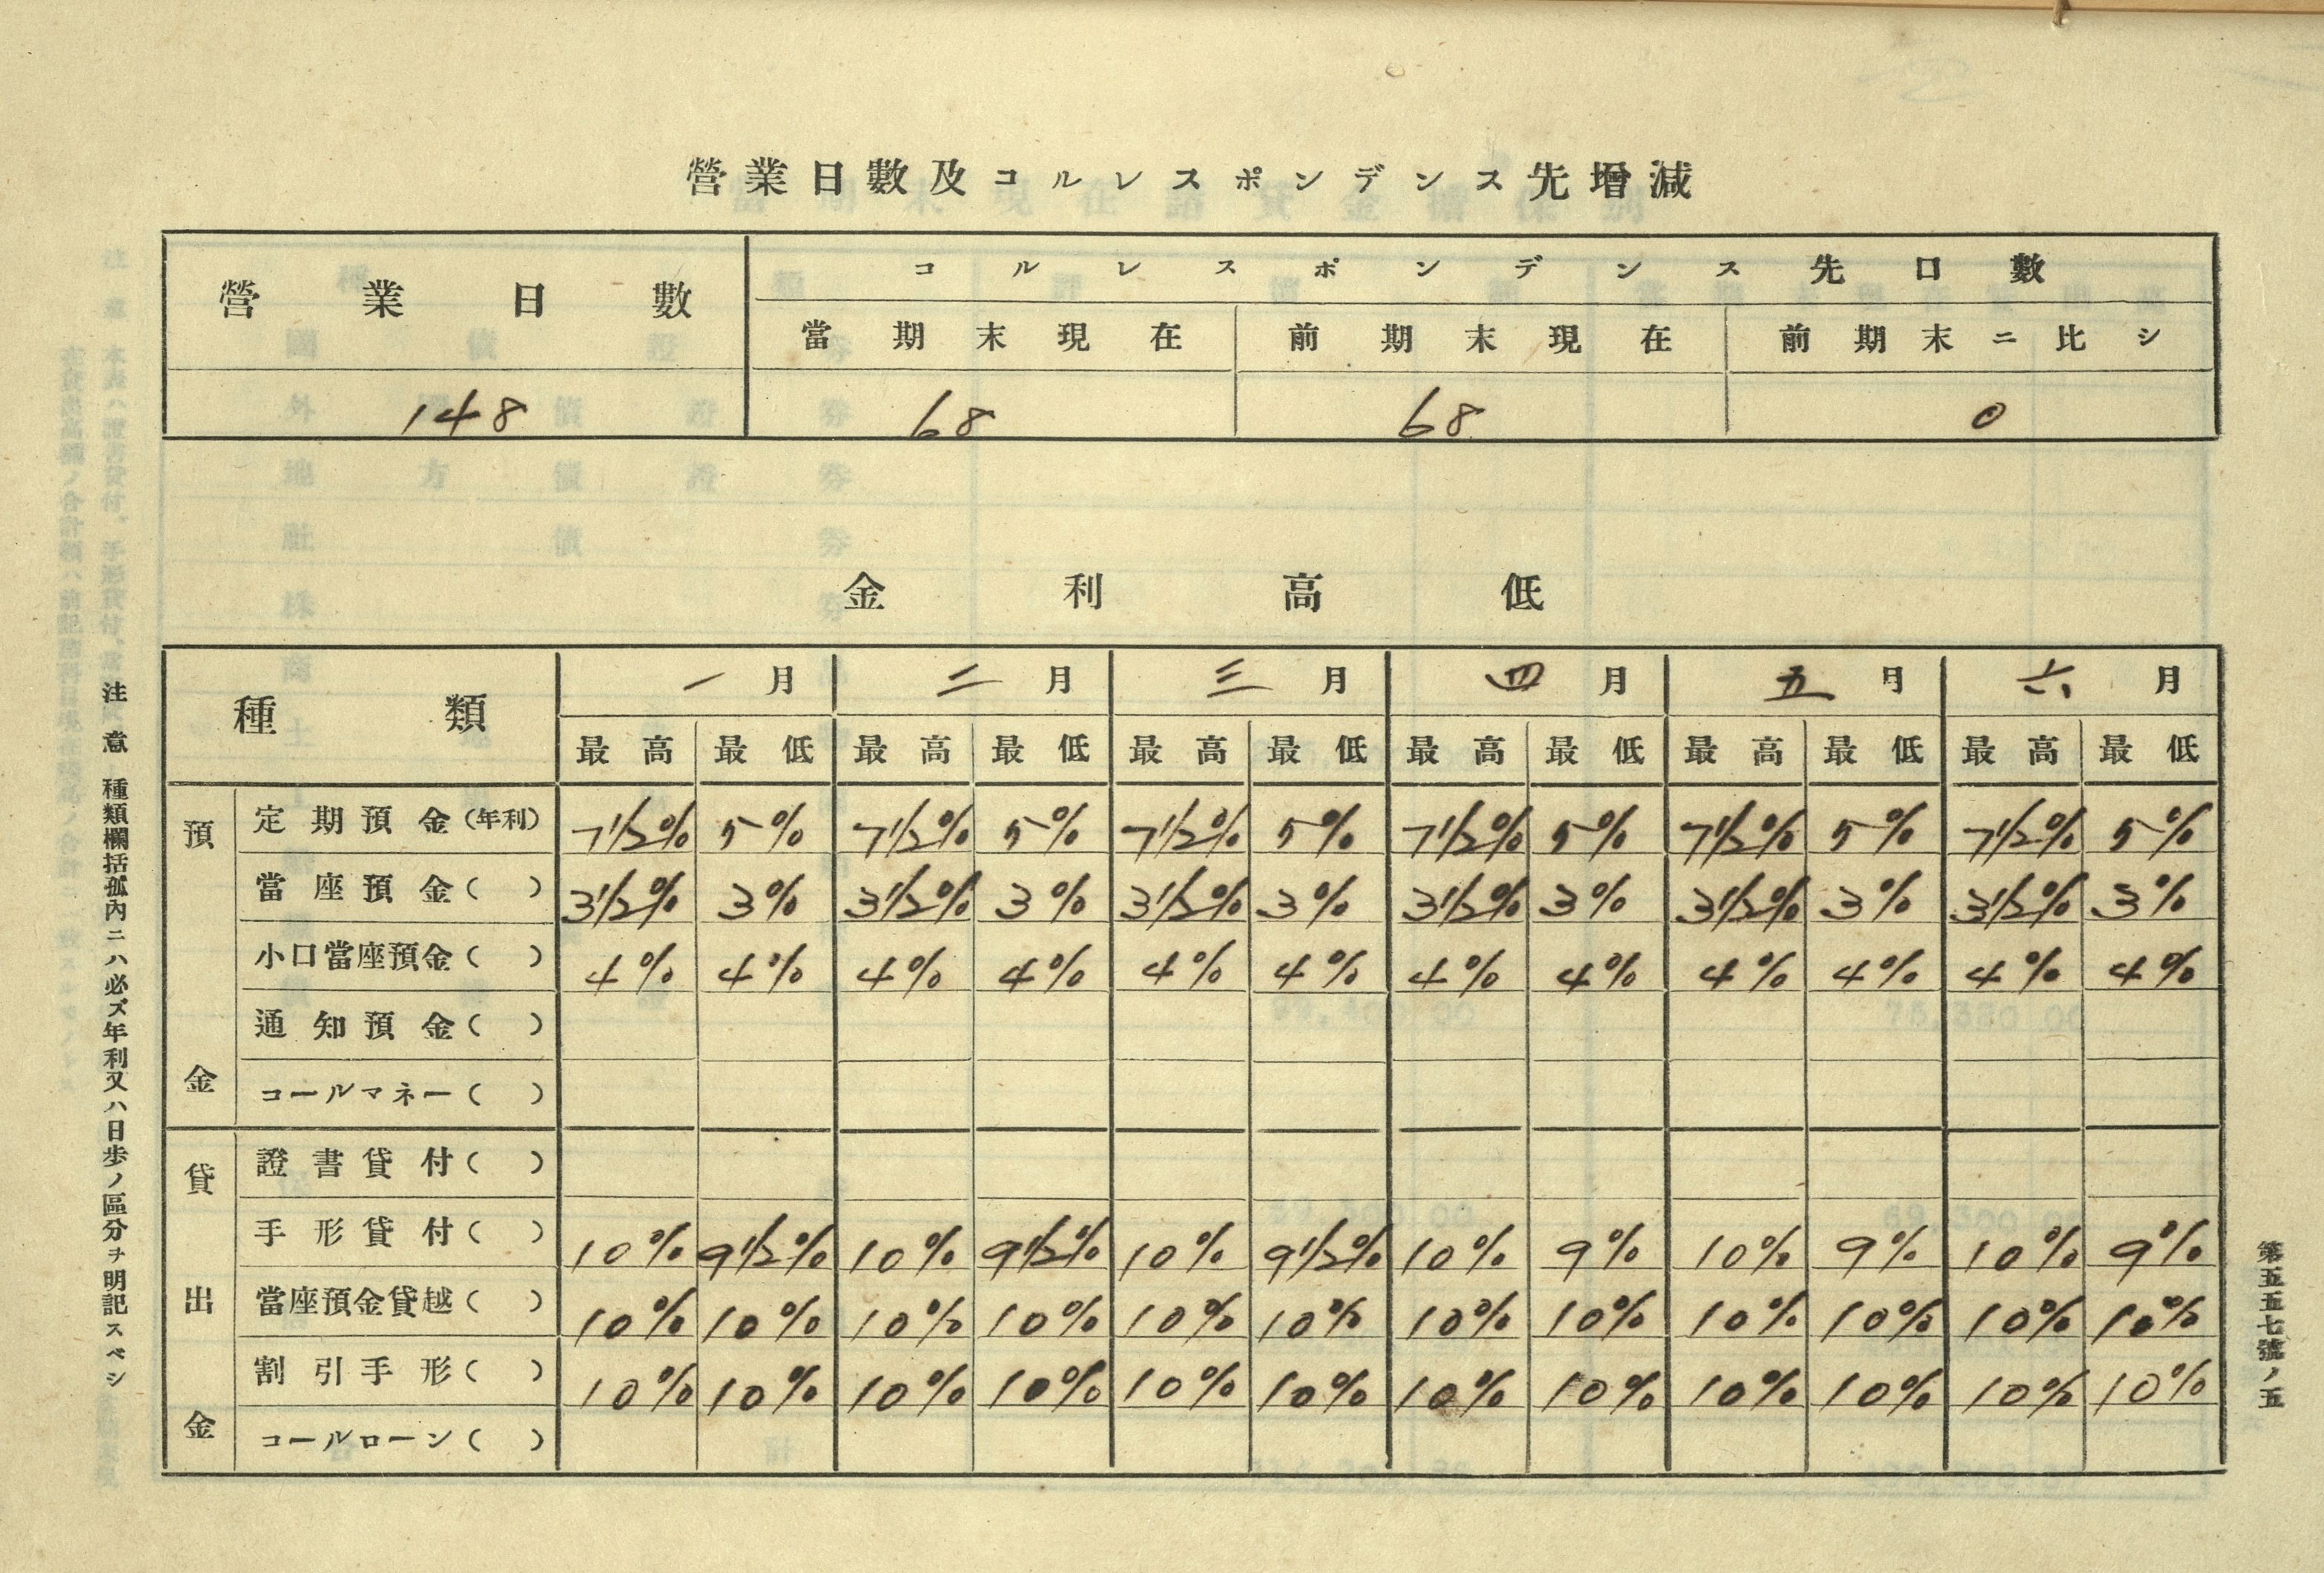 營業日數及コルレスポンデンス先增減
營業日數 コルレスポンデンス先口數
當期末現在 前期末現在 前期末ニ比シ
148 68 68 0
金利高低
種類 一月 二月 三月 四月 五月 六月
最高 最低 最高 最低 最高 最低 最高 最低 最高 最低 最高 最低
預金
定期預金(年利) 7½% 5% 7½% 5% 7½% 5% 7½% 5% 7½% 5% 7½% 5%
當座預金( ) 3½% 3% 3½% 3% 3½% 3% 3½% 3% 3½% 3% 3½% 3%
小口當座預金( ) 4% 4% 4% 4% 4% 4% 4% 4% 4% 4% 4% 4%
通知預金( )
コールマネー( )
貸出金
證書貸付( )
手形貸付( ) 10% 9½% 10% 9½% 10% 9½% 10% 9% 10% 9% 10% 9%
當座預金貸越( ) 10% 10% 10% 10% 10% 10% 10% 10% 10% 10% 10% 10%
割引手形( ) 10% 10% 10% 10% 10% 10% 10% 10% 10% 10% 10% 10%
コールローン( )
注意 種類欄括孤內ニハ必ズ年利又ハ日歩ノ區分ヲ明記スベシ
第五五七號ノ五